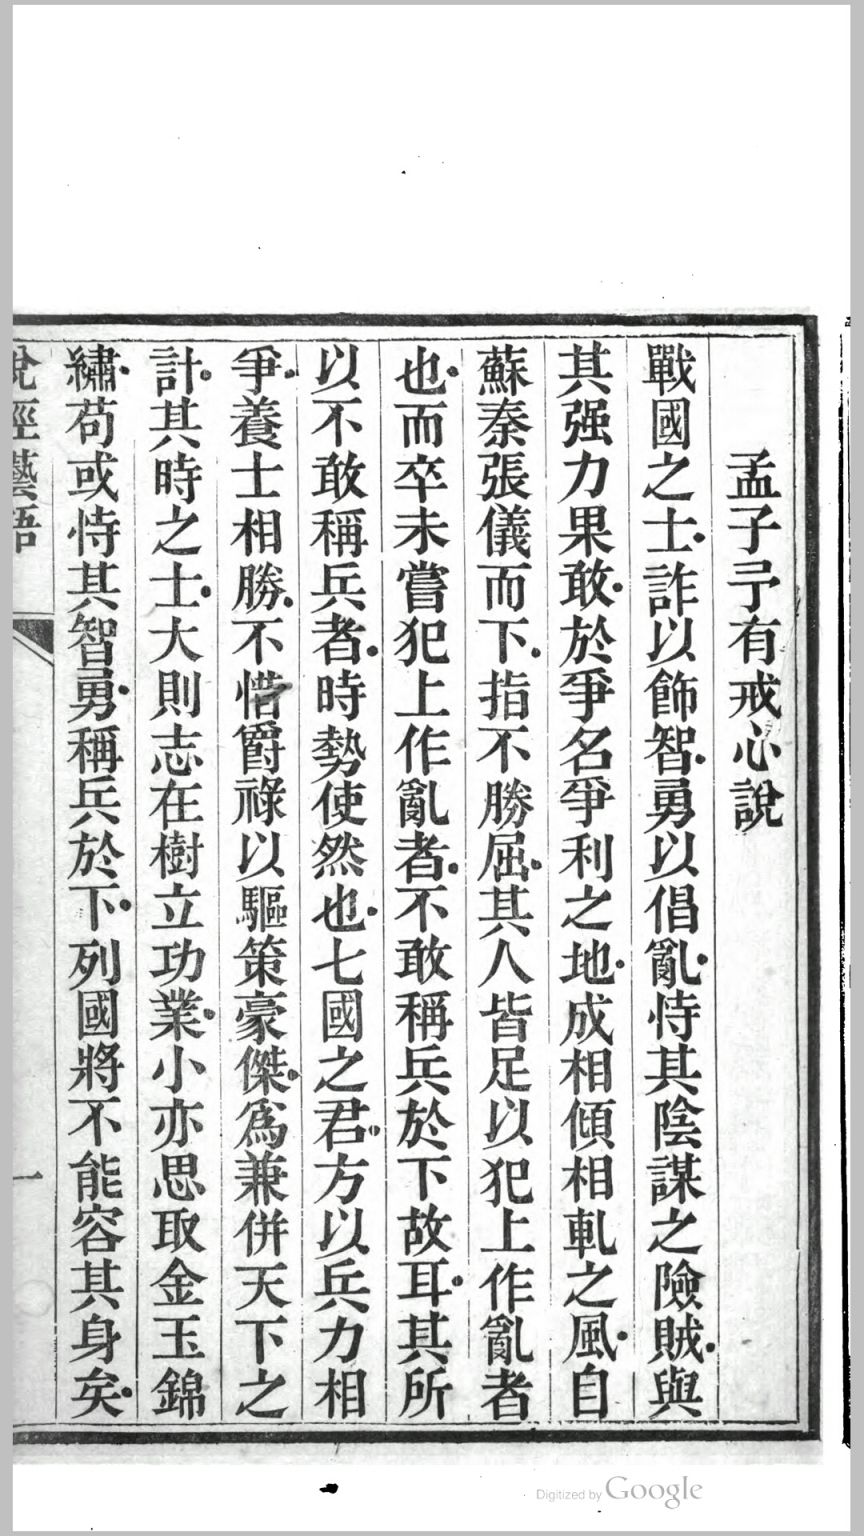 孟子予有戒心說
戰國之士詐以飾智勇以倡亂恃其陰謀之險賊與
其强力果敢於爭名爭利之地成相傾相軋之風自
蘇秦張儀而下指不勝屈其人皆足以犯上作亂者
也而卒未嘗犯上作亂者不敢稱兵於下故耳其所
以不敢稱兵者時勢使然也七國之君方以兵力相
爭養士相勝不惜爵祿以驅策豪傑爲兼併天下之
計其時之士大則志在樹立功業小亦思取金玉錦
繡苟或恃其智勇稱兵於下列國將不能容其身矣
說經藝語
一
Digitized by Google